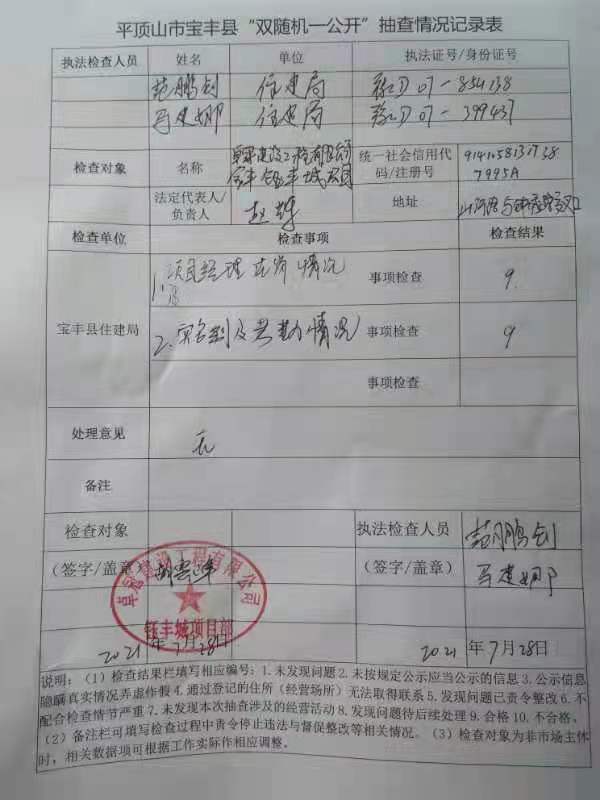 平顶山市宝丰县“双随机一公开”抽查情况记录表
执法检查人员 姓名 单位 执法证号/身份证号
范鹏钊 住建局 豫D07-854238
马建娜 住建局 豫D07-399437
检查对象 名称 建设工程有限公司 统一社会信用代码/注册号
宝丰钰丰城项目 7995A
法定代表人/负责人 赵 地址
检查单位 检查事项 检查结果
1. 项目经理在岗情况 事项检查 9.
宝丰县住建局 2. 实名制及考勤情况 事项检查 9
事项检查
处理意见 无
备注
检查对象 执法检查人员 范鹏钊
(签字/盖章) (签字/盖章) 马建娜
建设工程有限公司
钰丰城项目部
2021年7月28日 2021年7月28日
说明：（1）检查结果栏填写相应编号：1.未发现问题 2.未按规定公示应当公示的信息 3.公示信息
隐瞒真实情况弄虚作假 4.通过登记的住所（经营场所）无法取得联系 5.发现问题已责令整改 6.不
配合检查情节严重 7.未发现本次抽查涉及的经营活动 8.发现问题待后续处理 9.合格 10.不合格。
（2）备注栏可填写检查过程中责令停止违法与督促整改等相关情况。（3）检查对象为非市场主体
时，相关数据项可根据工作实际作相应调整。